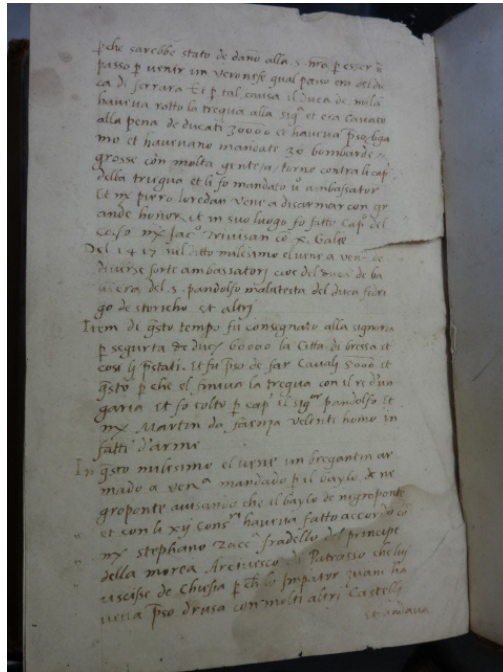 pche sarebbe stato de dano alla S. nra p esser ū
passo p venir in veronese qual passo era del du
ca di ferrara Et p tal causa il Duca de mila
haveva rotto la tregua alla Sigᵃ et era cascato
alla pena de ducati 30000 et haveva pso bga
mo et havevano mandate 30 bombarde
grosse con molta gente a torno contra li cap
della triegua et li fo mandato ū ambassator
Et mx piero loredan vene a disarmar con gr
ande honor, et in suo luogo fo fatto Capº del
colfo mx Jacº trivisan cō x. Galie
Del 1417 nel ditto milesimo el vene a venᵃ de
diverse sorte ambassatorj cioe del duca de ba
viera del S. pandolfo malatesta del duca fedri
go de storicho et altri
Item de qsto tempo fu consegnato alla signoria
p segurta de ducⁱ 60000 la Citta di bressa et
cosi li pstati. Et fu pso de far Cavalj 5000 et
qsto p che el finiva la tregua con il re d'un
garia Et fo tolto p capº il sigᵒʳ pandolfo Et
mx Martin da faenza valenti homo in
fatti d'arme
In qsto milesimo el vene un bregantin ar
mado a venᵃ mandado p il baylo de ne
groponte avisando che il baylo de nigroponte
et con li xij consⁱ haveva fatto accordo cō
mx stephano zaccᵃ fradello del principe
della morea Arcivesco di Patrasso che lui
uscisse de p ch lo Impator zuani ha
veva pso drusa con molti altri Castelli
et andava